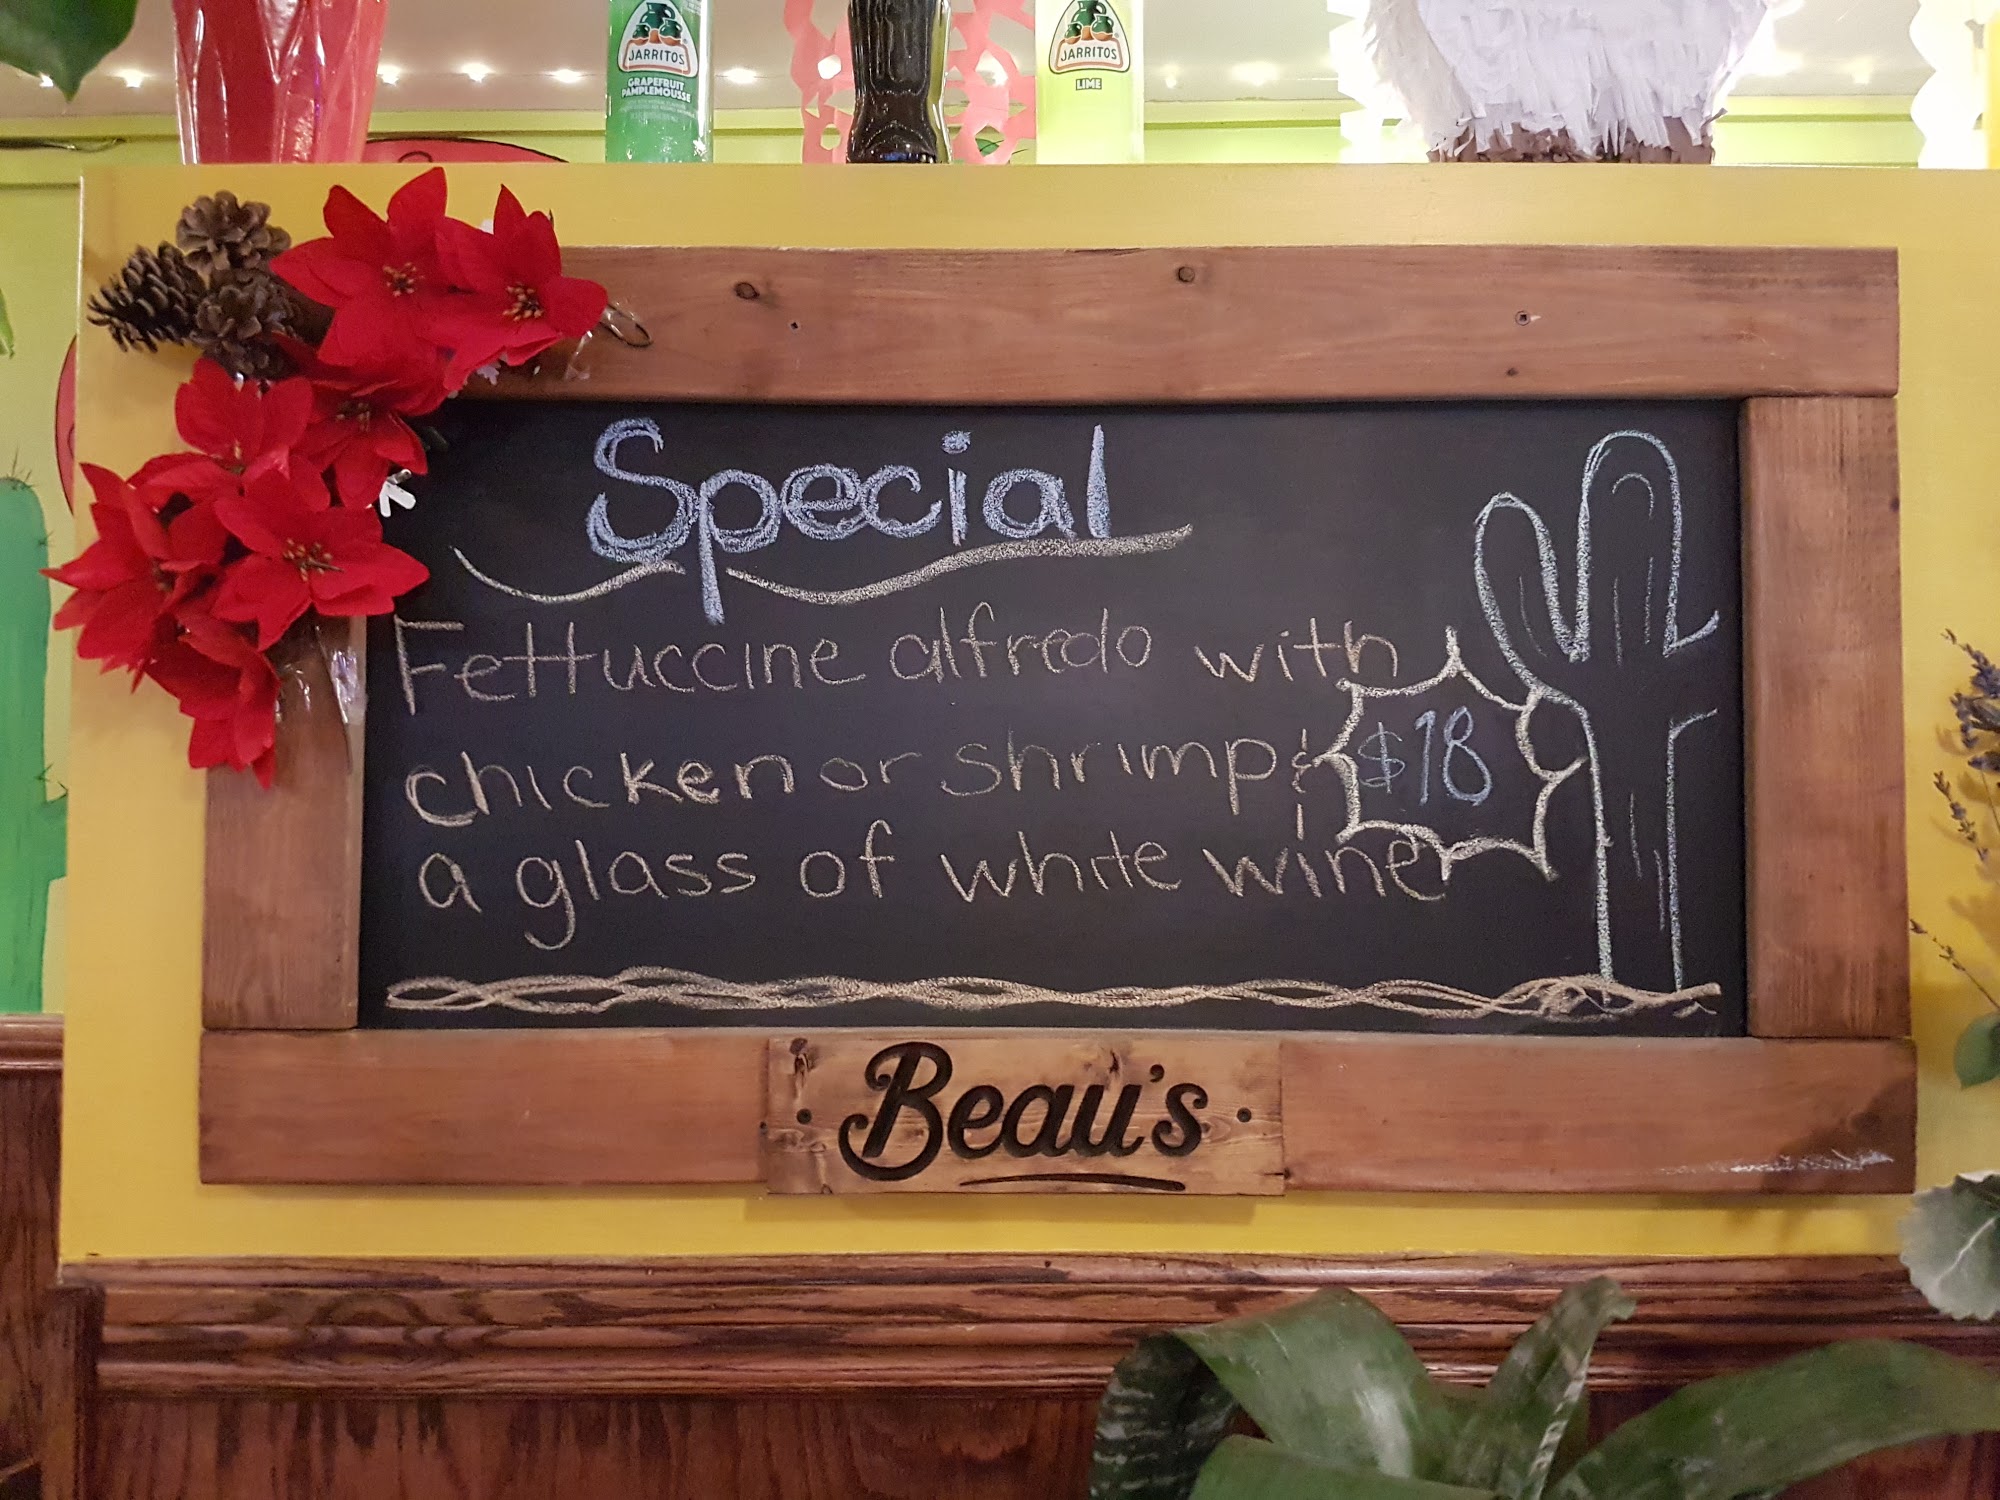 JARRITOS
GRAPEFRUIT
PAMPLEMOUSSE
JARRITOS
LIME
Special
Fettuccine alfredo with
chicken or shrimp &
$18
a glass of white wine
Beau's